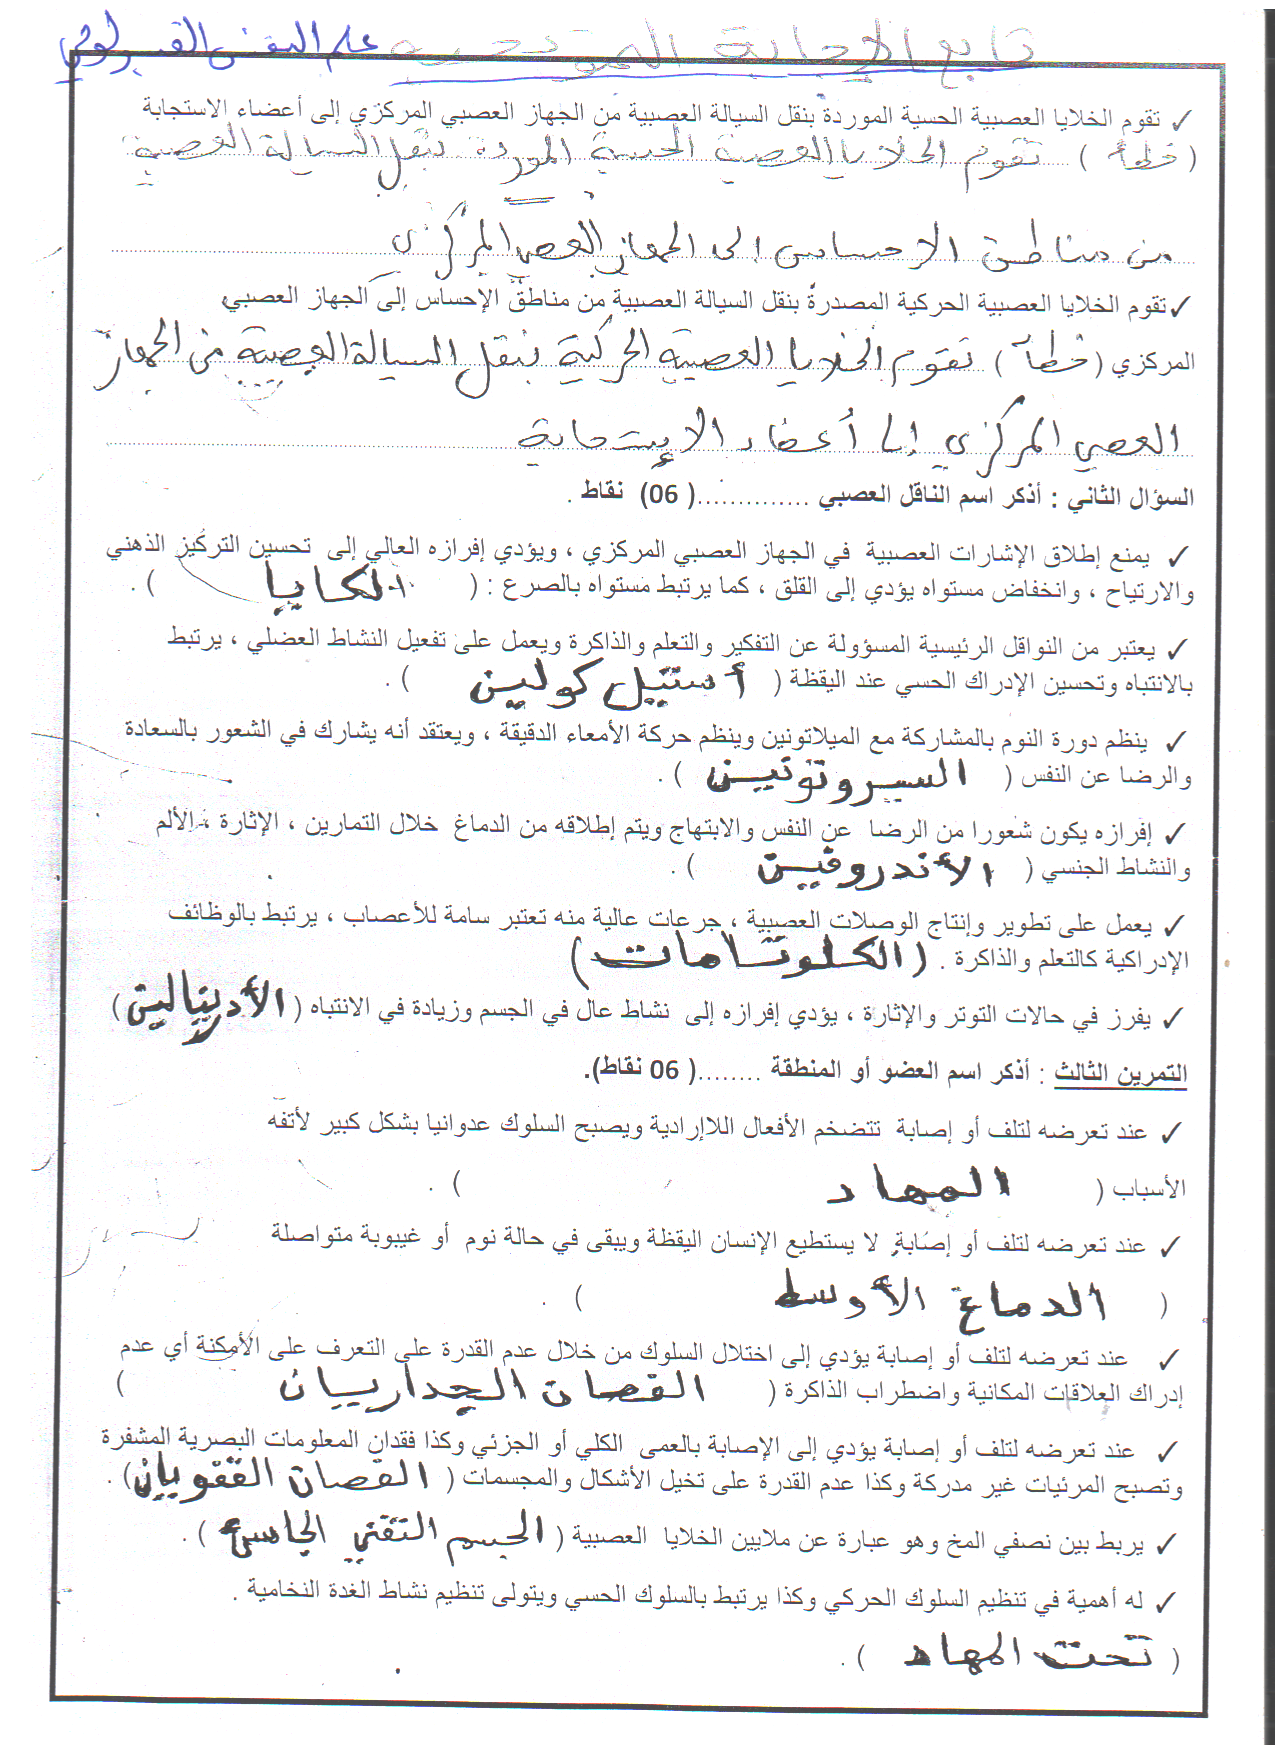 تابع الإجابة النموذجية علم النفس الفسيولوجي
✓ تقوم الخلايا العصبية الحسية الموردة بنقل السيالة العصبية من الجهاز العصبي المركزي إلى أعضاء الاستجابة
( خطأ ) تقوم الخلايا العصبية الحسية الموردة بنقل السيالة العصبية
من مناطق الاحساس الى الجهاز العصبي المركزي
✓ تقوم الخلايا العصبية الحركية المصدرة بنقل السيالة العصبية من مناطق الإحساس إلى الجهاز العصبي
المركزي ( خطأ ) تقوم الخلايا العصبية الحركية بنقل السيالة العصبية من الجهاز
العصبي المركزي إلى أعضاء الإستجابة
السؤال الثاني : أذكر اسم الناقل العصبي .............( 06) نقاط .
✓ يمنع إطلاق الإشارات العصبية في الجهاز العصبي المركزي ، ويؤدي إفرازه العالي إلى تحسين التركيز الذهني
والارتياح ، وانخفاض مستواه يؤدي إلى القلق ، كما يرتبط مستواه بالصرع : ( الكابا ) .
✓ يعتبر من النواقل الرئيسية المسؤولة عن التفكير والتعلم والذاكرة ويعمل على تفعيل النشاط العضلي ، يرتبط
بالانتباه وتحسين الإدراك الحسي عند اليقظة ( أستيل كولين ) .
✓ ينظم دورة النوم بالمشاركة مع الميلاتونين وينظم حركة الأمعاء الدقيقة ، ويعتقد أنه يشارك في الشعور بالسعادة
والرضا عن النفس ( السيروتونين ) .
✓ إفرازه يكون شعورا من الرضا عن النفس والابتهاج ويتم إطلاقه من الدماغ خلال التمارين ، الإثارة ، الألم
والنشاط الجنسي ( الأندروفين ) .
✓ يعمل على تطوير وإنتاج الوصلات العصبية ، جرعات عالية منه تعتبر سامة للأعصاب ، يرتبط بالوظائف
الإدراكية كالتعلم والذاكرة . ( الكلوتامات )
✓ يفرز في حالات التوتر والإثارة ، يؤدي إفرازه إلى نشاط عال في الجسم وزيادة في الانتباه ( الأدرينالين )
التمرين الثالث : أذكر اسم العضو أو المنطقة ........( 06 نقاط).
✓ عند تعرضه لتلف أو إصابة تتضخم الأفعال اللاإرادية ويصبح السلوك عدوانيا بشكل كبير لأتفه
الأسباب ( المهاد ) .
✓ عند تعرضه لتلف أو إصابة لا يستطيع الإنسان اليقظة ويبقى في حالة نوم أو غيبوبة متواصلة
( الدماغ الأوسط ) .
✓ عند تعرضه لتلف أو إصابة يؤدي إلى اختلال السلوك من خلال عدم القدرة على التعرف على الأمكنة أي عدم
إدراك العلاقات المكانية واضطراب الذاكرة ( الفصان الجداريان )
✓ عند تعرضه لتلف أو إصابة يؤدي إلى الإصابة بالعمى الكلي أو الجزئي وكذا فقدان المعلومات البصرية المشفرة
وتصبح المرئيات غير مدركة وكذا عدم القدرة على تخيل الأشكال والمجسمات ( الفصان القفويان ) .
✓ يربط بين نصفي المخ وهو عبارة عن ملايين الخلايا العصبية ( الجسم الثفني الجاسئ ) .
✓ له أهمية في تنظيم السلوك الحركي وكذا يرتبط بالسلوك الحسي ويتولى تنظيم نشاط الغدة النخامية .
( تحت المهاد ) .